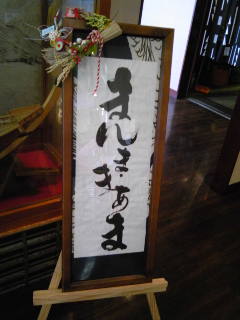 まんま・きあま